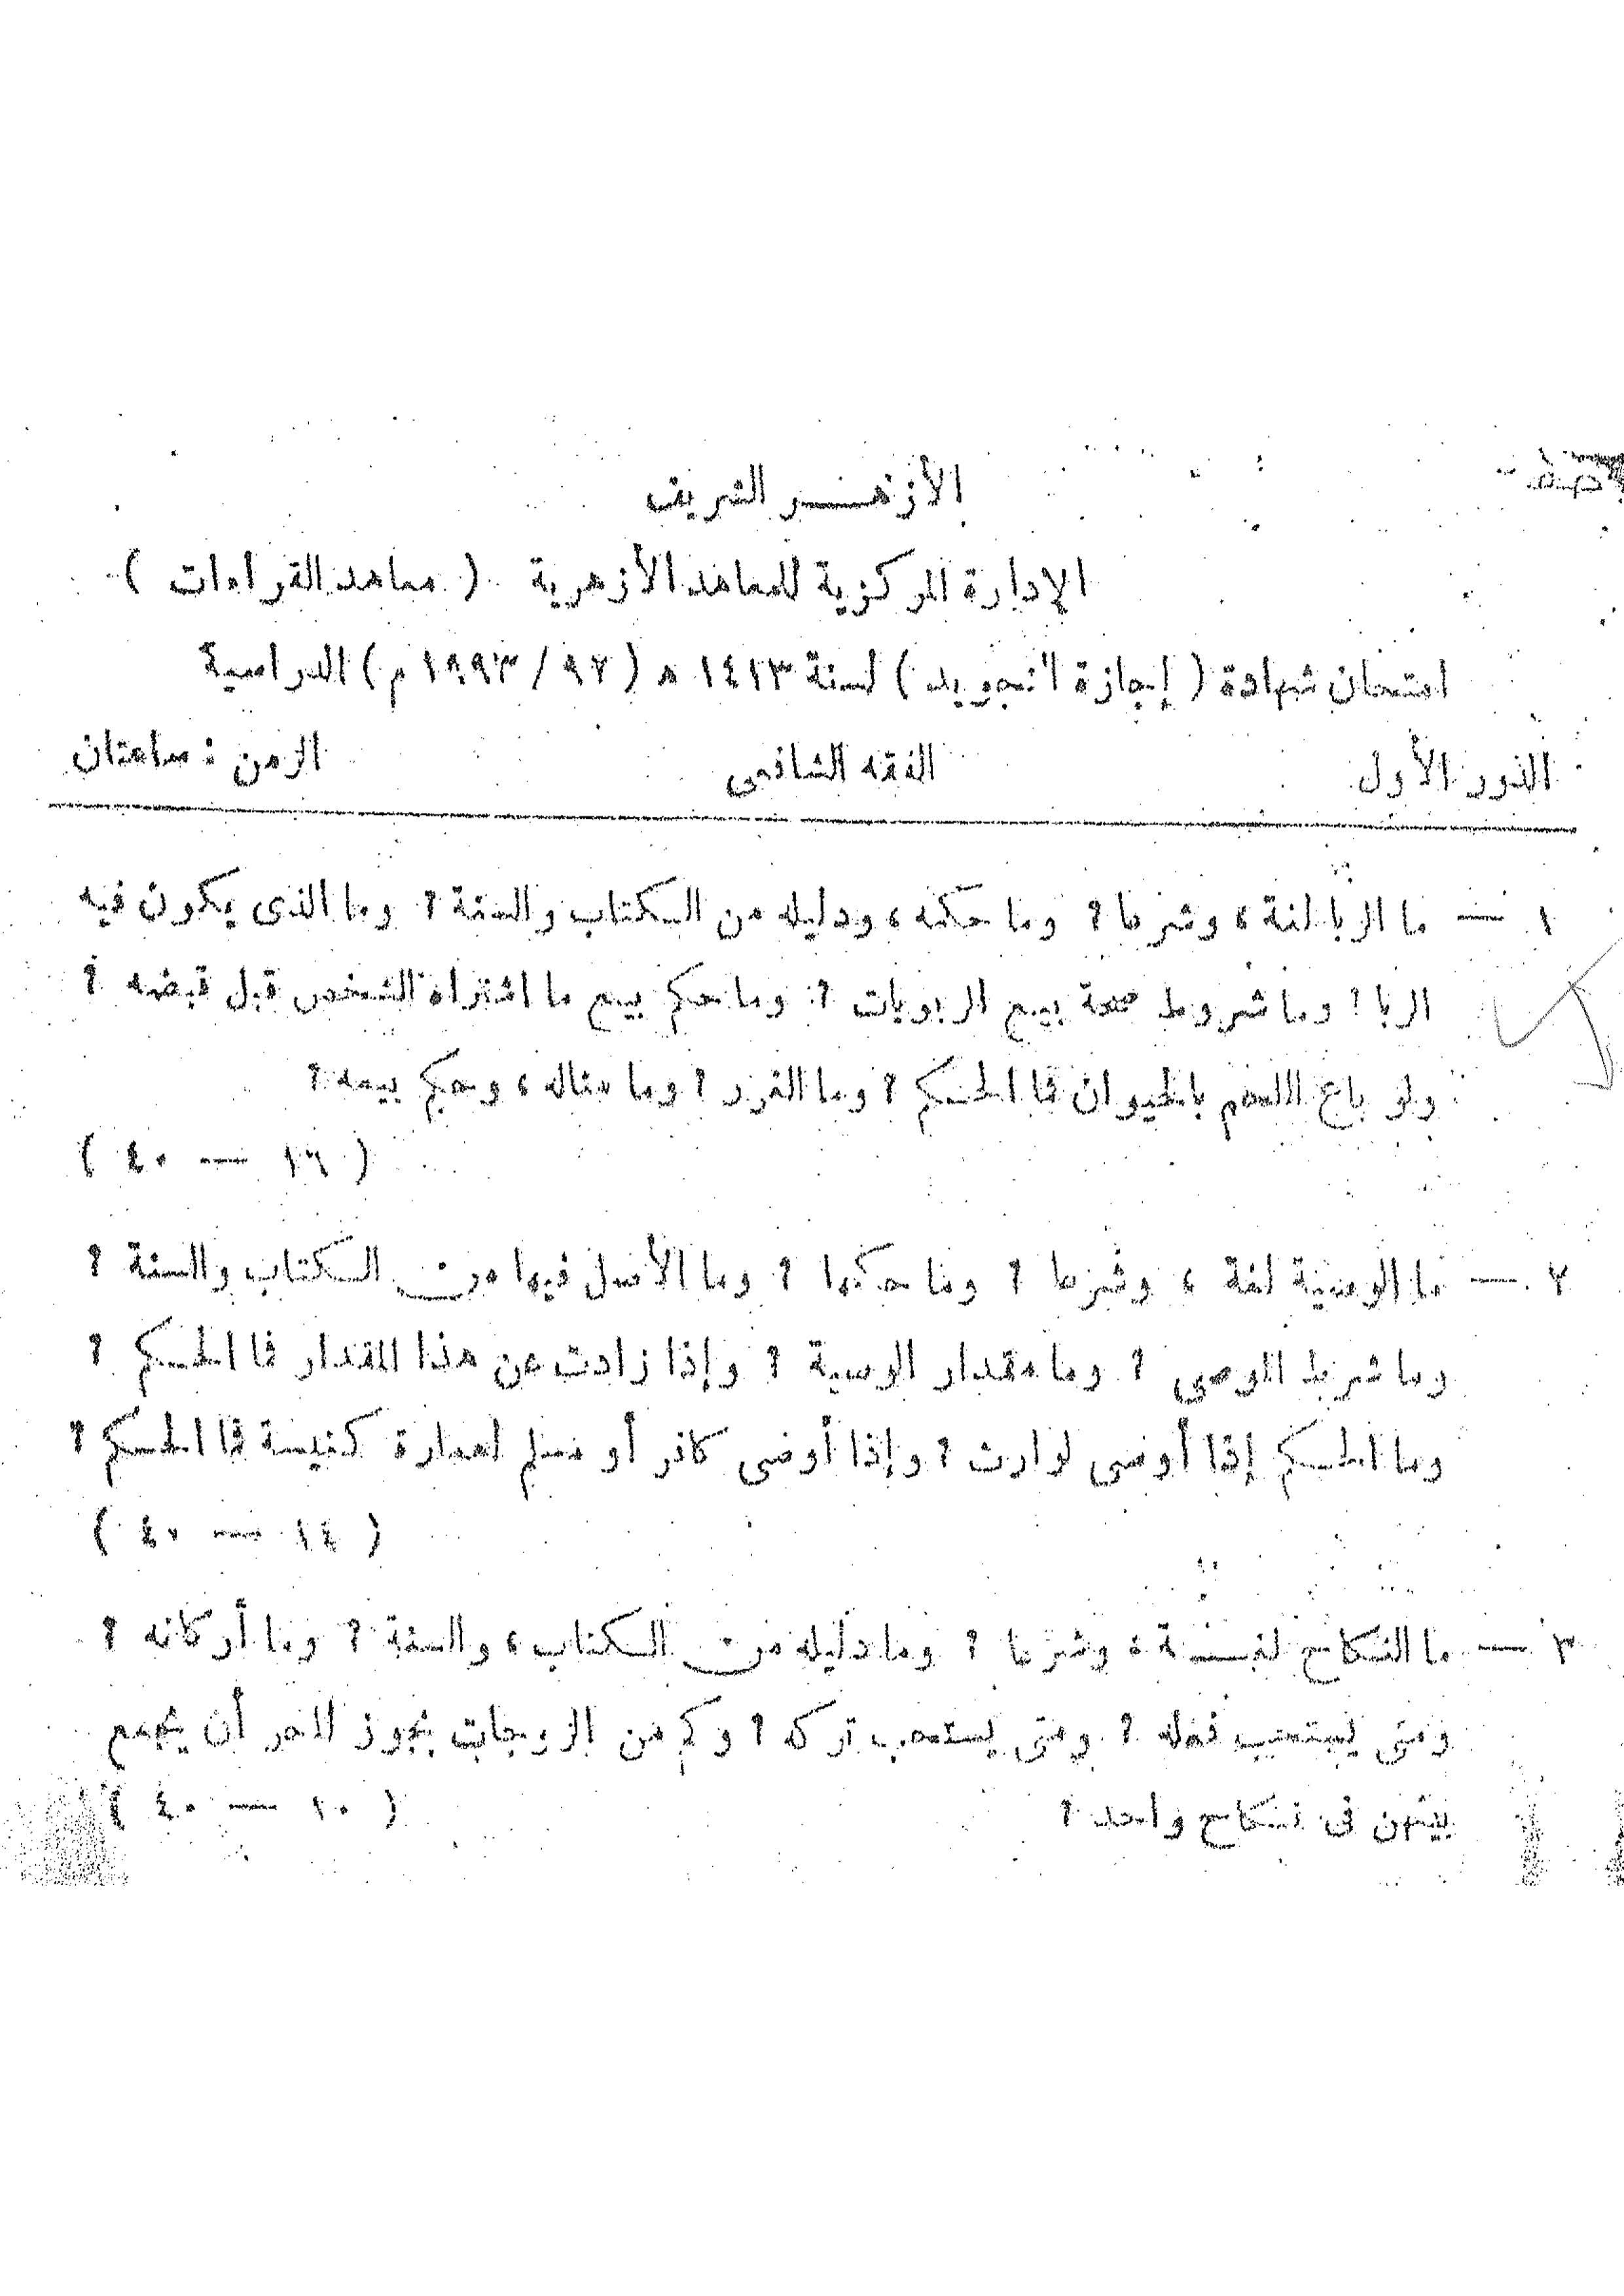 الأزهـــر الشريف
الإدارة المركزية للمعاهد الأزهرية ( معاهد القراءات )
امتحان شهادة ( إجازة التجويد ) لسنة ١٤١٣ ه ( ٩٢ / ١٩٩٣ م ) الدراسية
الدور الأول الفقه الشافعى الزمن : ساعتان
١ — ما الربا لغة ، وشرعا ؟ وما حكمه ، ودليله من الكتاب والسنة ؟ وما الذى يكون فيه
الربا ؟ وما شروط صحة بيع الربويات ؟ وما حكم بيع ما اشتراه الشخص قبل قبضه ؟
ولو باع اللحم بالحيوان فما الحكم ؟ وما الغرر ؟ وما مثاله ، وحكم بيعه ؟
( ١٦ — ٤٠ )
٢ — ما الوصية لغة ، وشرعا ؟ وما حكمها ؟ وما الأصل فيها من الكتاب والسنة ؟
وما شرط الموصى ؟ وما مقدار الوصية ؟ وإذا زادت عن هذا المقدار فما الحكم ؟
وما الحكم إذا أوصى لوارث ؟ وإذا أوصى كافر أو مسلم لعمارة كنيسة فما الحكم ؟
( ١٤ — ٤٠ )
٣ — ما النكاح لغــة ، وشرعا ؟ وما دليله من الكتاب ، والسنة ؟ وما أركانه ؟
ومتى يستحب فعله ؟ ومتى يستحب تركه ؟ وكم من الزوجات يجوز للحر أن يجمع
بينهن فى نكاح واحد ؟ ( ١٠ — ٤٠ )